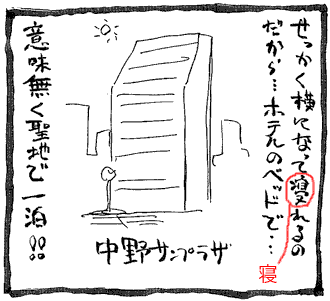 せっかく横になって寝れるの
だから…ホテルのベッドで…
寝
中野サンプラザ
意味無く聖地で一泊!!